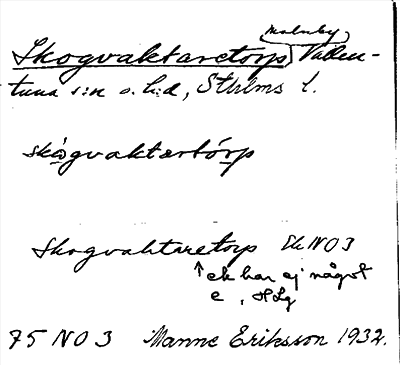 Malmby,
Skogvaktaretorp, Vallen-
tuna s:n o. h:d, Sthlms l.
skògvaktartórp
Skogvaktaretorp Ek NO 3
↑ ek har ej något
e, HLg
75 NO 3 Manne Eriksson 1932.